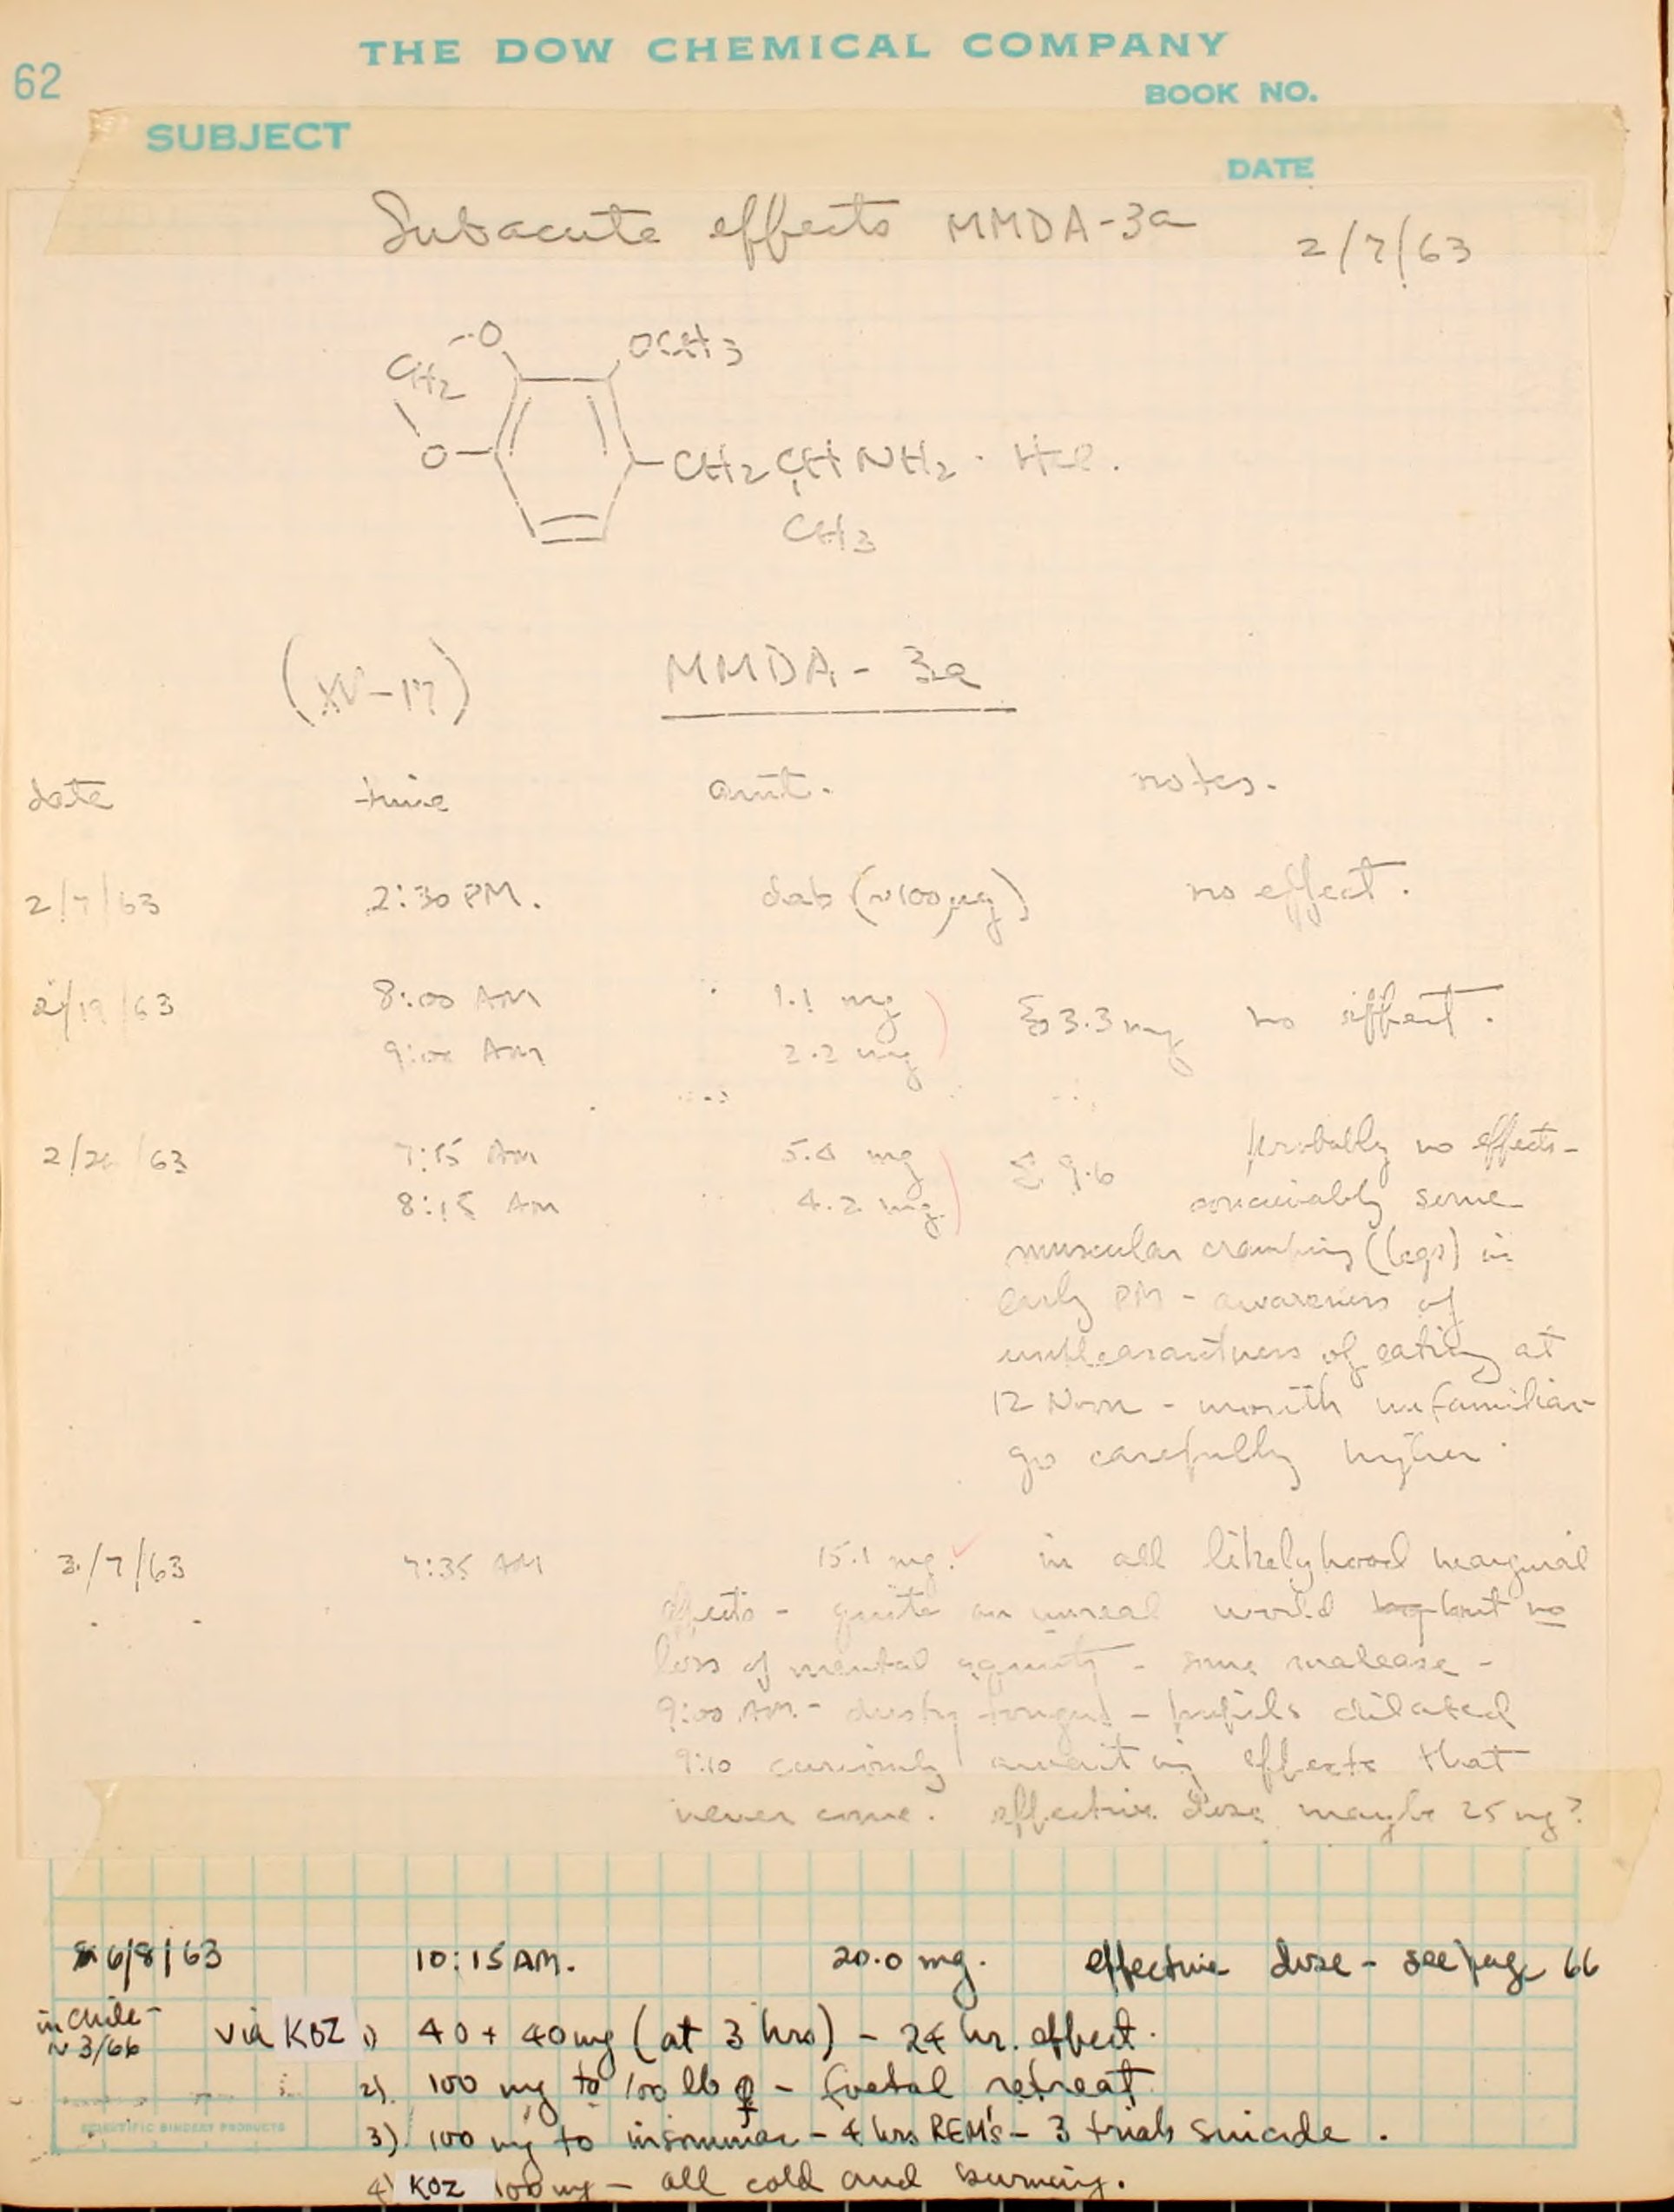 62
THE DOW CHEMICAL COMPANY
BOOK NO.
SUBJECT
DATE
Subacute effects MMDA-3a 2/7/63
O OCH3
CH2
O CH2CHNH2 · HCl.
CH3
(XV-17) MMDA-3a
date time amt. notes.
2/7/63 2:30 PM. dab (~100 µg) no effect.
2/19/63 8:00 AM 1.1 mg
Σ 3.3 mg no effect.
9:00 AM 2.2 mg
2/26/63 7:15 AM 5.4 mg Σ 9.6 probably no effects-
8:15 AM 4.2 mg. conceivably some
muscular cramping (legs) in
early PM - awareness of
unpleasantness of eating at
12 Noon - mouth unfamiliar
go carefully higher.
3/7/63 7:35 AM 15.1 mg. in all likelyhood marginal
effects - quite an unreal world but no
loss of mental - some malease -
9:00 AM - dusky tongue - pupils dilated
9:10 curiously awaiting effects that
never come. effective dose maybe 25 mg?
6/8/63 10:15 AM. 20.0 mg. effective dose - see page 66
in Chile - ~ 3/66 via KOZ 1) 40 + 40 mg (at 3 hrs) - 24 hr. effect.
2). 100 mg to 100 lb ♀ - foetal retreat
3). 100 mg to insomniac - 4 hrs REM's - 3 trials suicide.
4) KOZ 100 mg - all cold and burning.
SCIENTIFIC BINDERY PRODUCTS